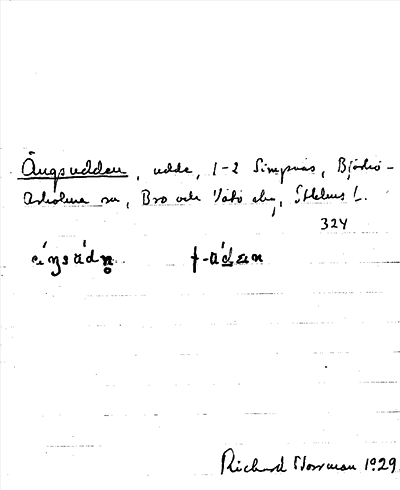 Ängsudden, udde, 1-2 Simpnäs, Björkö-
Arholma sn, Bro och Vätö skg, Sthlms l.
324
Richard Norrman 1929